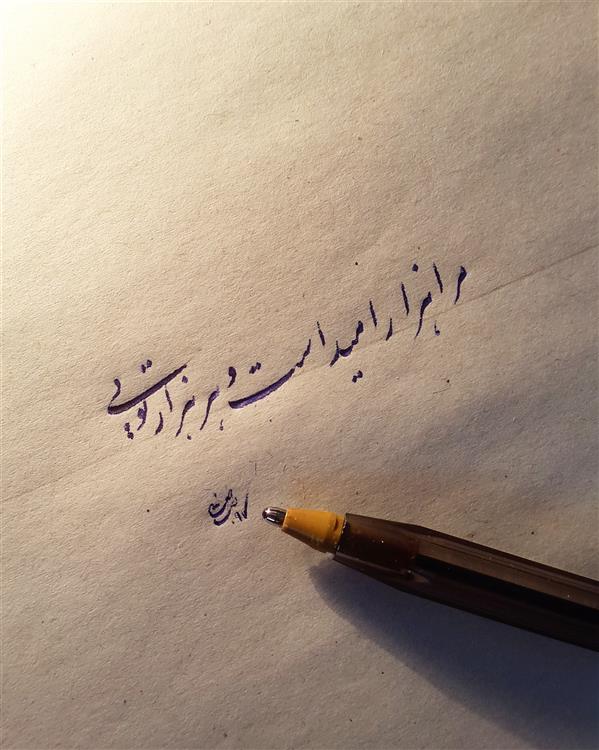 مرا هزار امید است و هر هزار تویی